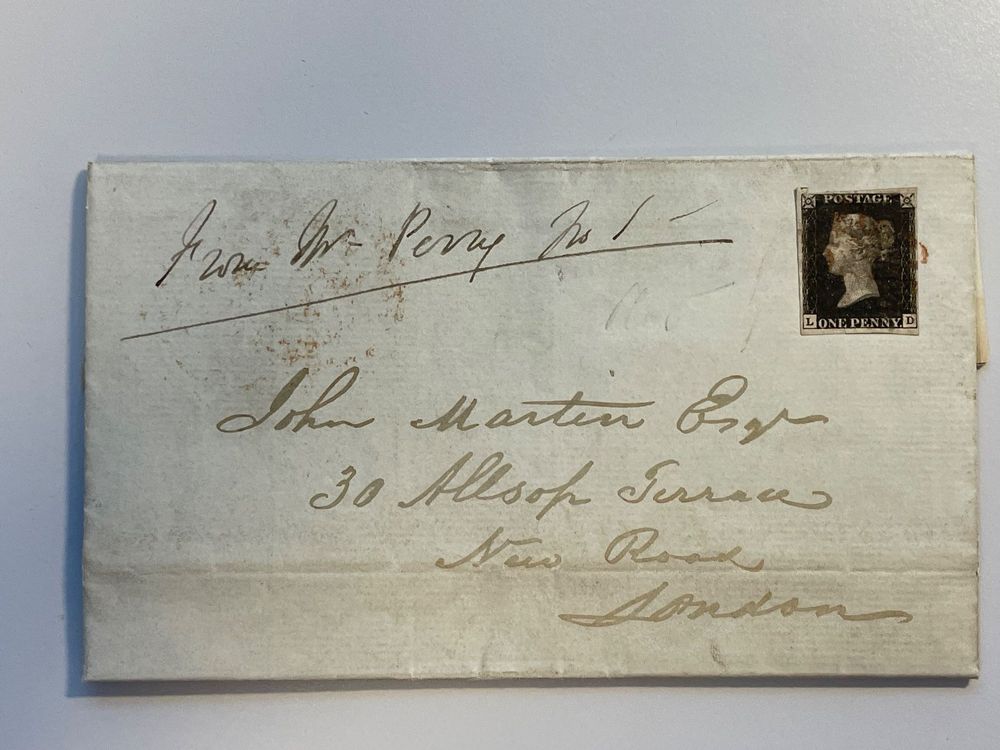 From Mr Perry No 1
POSTAGE
L ONE PENNY D
John Martin Esqr
30 Allsop Terrace
New Road
London